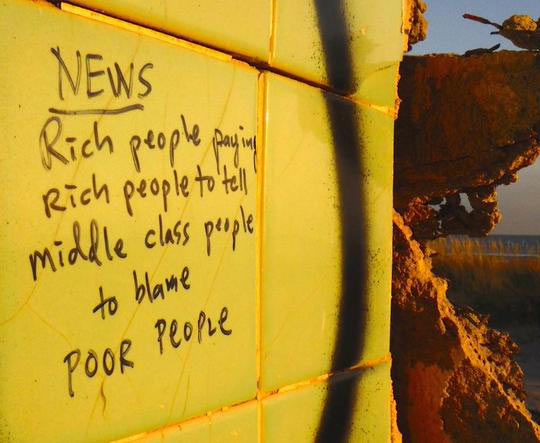 NEWS
Rich people paying
Rich people to tell
middle class people
to blame
POOR PEOPLE